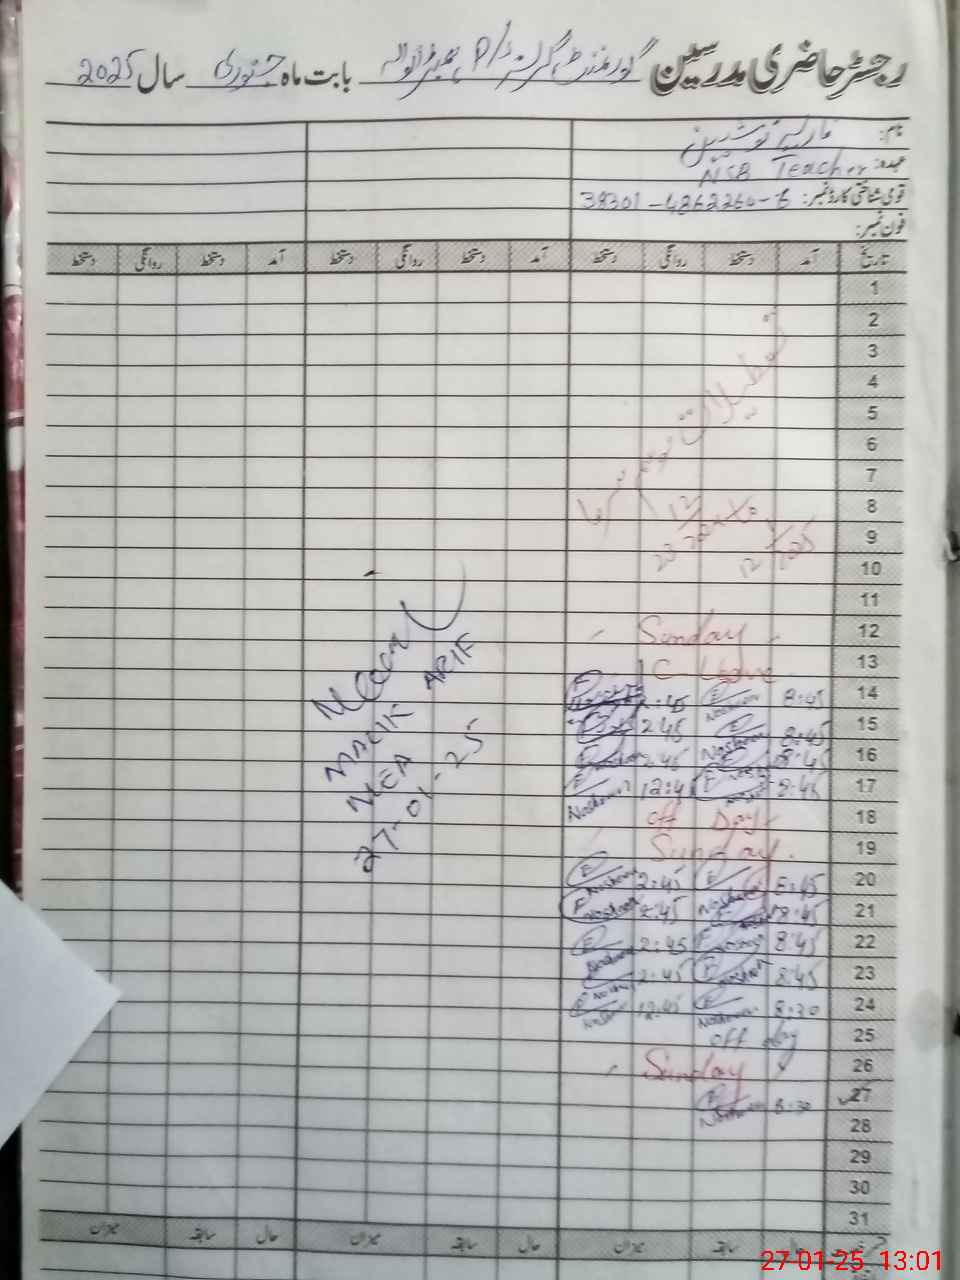 رجسٹر حاضری مدرسین گورنمنٹ گرلز P/S بابت ماہ جنوری سال 2025
نام:
عہدہ: NSB Teacher
قومی شناختی کارڈ نمبر: 38301-4862260-6
فون نمبر:
تاریخ آمد دستخط روانگی دستخط آمد دستخط روانگی دستخط آمد دستخط روانگی دستخط
1
2
3
4
5
6
7
8
9
10
11
12 Sunday
13 C Leave
14 8:45 Nosheen 2:45
15 8:45 Nosheen 2:45
16 8:45 2:45
17 8:45 12:4 Nosheen
18 off Day
19 Sunday
20 8:45 2:45 Nosheen
21 8:45 Nosheen 2:45 Nosheen
22 8:45 2:45
23 8:45 Nosheen 2:45
24 8:30 Nosheen 12:45
25 off day
26 Sunday
27 8:30 Nosheen
28
29
30
31
تعطیلات موسم سرما
MALIK ARIF
MEA
27-01-25
حال سابقہ میزان حال سابقہ میزان حال سابقہ میزان
27-01-25 13:01